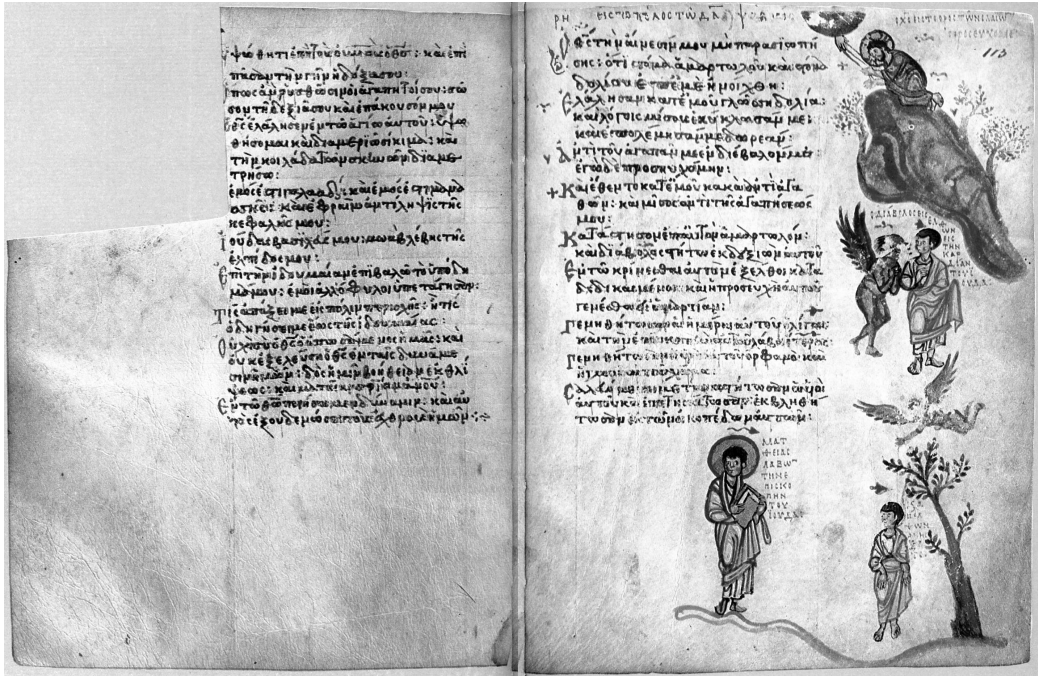 ὑψώθητι ἐπὶ τοὺς οὐνοὺς ὁ θς: καὶ ἐπὶ
πᾶσαν τὴν γῆν ἡ δόξα σου:
ὅπως ἂν ῥυσθῶσιν οἱ ἀγαπητοί σου: σῶ
σον τῇ δεξιᾷ σου καὶ ἐπάκουσόν μου
ὁ θς ἐλάλησεν ἐν τῷ ἁγίῳ αὐτοῦ: ὑψω
θήσομαι καὶ διαμεριῶ σίκιμα: καὶ
τὴν κοιλάδα τῶν σκηνῶν διαμε
τρήσω:
ἐμός ἐστι γαλαάδ: καὶ ἐμός ἐστι μανα
σσῆς: καὶ ἐφραὶμ ἀντίληψις τῆς
κεφαλῆς μου:
ἰούδας βασιλεύς μου: μωὰβ λέβης τῆς
ἐλπίδος μου:
ἐπὶ τὴν ἰδουμαίαν ἐπιβαλῶ τὸ ὑπόδη
μά μου: ἐμοὶ ἀλλόφυλοι ὑπετάγησαν:
τίς ἀπάξει με εἰς πόλιν περιοχῆς: ἢ τίς
ὁδηγήσει με ἕως τῆς ἰδουμαίας:
οὐχὶ σὺ ὁ θς ὁ ἀπωσάμενος ἡμᾶς: καὶ
οὐκ ἐξελεύσῃ ὁ θς ἐν ταῖς δυνάμε
σιν ἡμῶν: δὸς ἡμῖν βοήθειαν ἐκ θλί
ψεως: καὶ ματαία σωτηρία ἀνου:
ἐν τῷ θῷ ποιήσωμεν δύναμιν: καὶ αὐ
τὸς ἐξουδενώσει τοὺς ἐχθροὺς ἡμῶν:
ΡΗ ΕΙΣ ΤΟ ΤΕΛΟΣ ΤΩ ΔΑΔ
113
ὁ θς τὴν αἴνεσίν μου μὴ παρασιωπή
σῃς: ὅτι στόμα ἁμαρτωλοῦ καὶ στόμα
δολίου ἐπ' ἐμὲ ἠνοίχθη:
ἐλάλησαν κατ' ἐμοῦ γλώσσῃ δολίᾳ:
καὶ λόγοις μίσους ἐκύκλωσάν με:
καὶ ἐπολέμησάν με δωρεάν:
ἀντὶ τοῦ ἀγαπᾶν με ἐνδιέβαλλόν με:
ἐγὼ δὲ προσηυχόμην:
καὶ ἔθεντο κατ' ἐμοῦ κακὰ ἀντὶ ἀγα
θῶν: καὶ μῖσος ἀντὶ τῆς ἀγαπήσεώς
μου:
κατάστησον ἐπ' αὐτὸν ἁμαρτωλόν:
καὶ διάβολος στήτω ἐκ δεξιῶν αὐτοῦ
ἐν τῷ κρίνεσθαι αὐτὸν ἐξέλθοι κατα
δεδικασμένος: καὶ ἡ προσευχὴ αὐτοῦ
γενέσθω εἰς ἁμαρτίαν:
γενηθήτωσαν αἱ ἡμέραι αὐτοῦ ὀλίγαι:
καὶ τὴν ἐπισκοπὴν αὐτοῦ λάβοι ἕτερος:
γενηθήτωσαν οἱ υἱοὶ αὐτοῦ ὀρφανοί: καὶ
σαλευόμενοι μεταναστήτωσαν οἱ υἱοὶ
αὐτοῦ καὶ ἐπαιτησάτωσαν: ἐκβληθή
τωσαν ἐκ τῶν οἰκοπέδων αὐτῶν:
Ο ΔΙΑΒΟΛΟΣ ΕΙΣΕΛ
ΘΩΝ
ΕΙΣ
ΤΗΝ
ΚΑΡ
ΔΙΑΝ
ΤΟΥ Ι
ΟΥΔΑ:
ΜΑΤ
ΘΕΙΑΣ
ΛΑΒΩΝ
ΤΗΝ Ε
ΠΙΣΚΟ
ΠΗΝ
ΤΟΥ
ΙΟΥΔΑ: